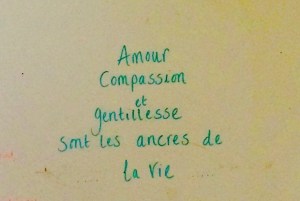 Amour
Compassion
et
gentillesse
sont les ancres de
la vie